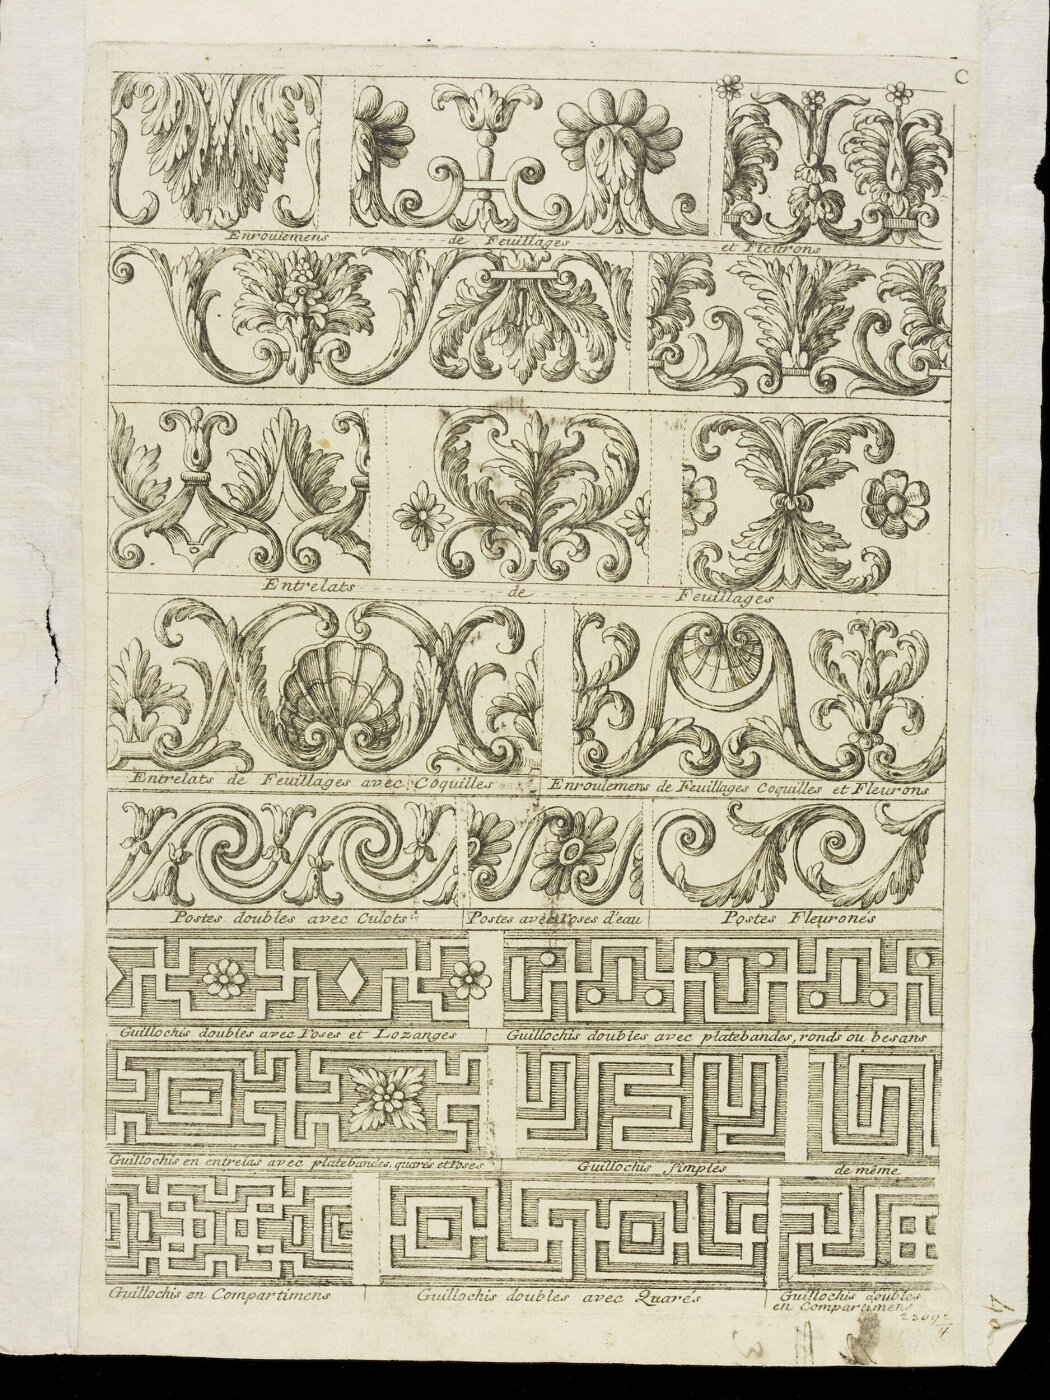 C
Enroulemens de Feuillages et Fleurons
Entrelats de Feuillages
Entrelats de Feuillages avec Coquilles
Enroulemens de Feuillages Coquilles et Fleurons
Postes doubles avec Culots
Postes avec roses d'eau
Postes Fleuronés
Guillochis doubles avec roses et Lozanges
Guillochis doubles avec platebandes, ronds ou besans
Guillochis en entrelas avec platebandes, quarés et roses
Guillochis simples
de même
Guillochis en Compartimens
Guillochis doubles avec Quarés
Guillochis doubles
en Compartimens
23092
4
40